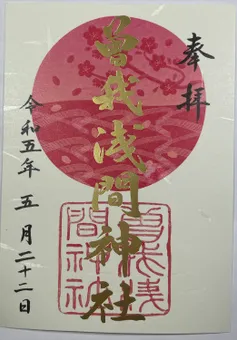 奉拝
曽我浅間神社
曽我浅間神社
令和五年五月二十二日